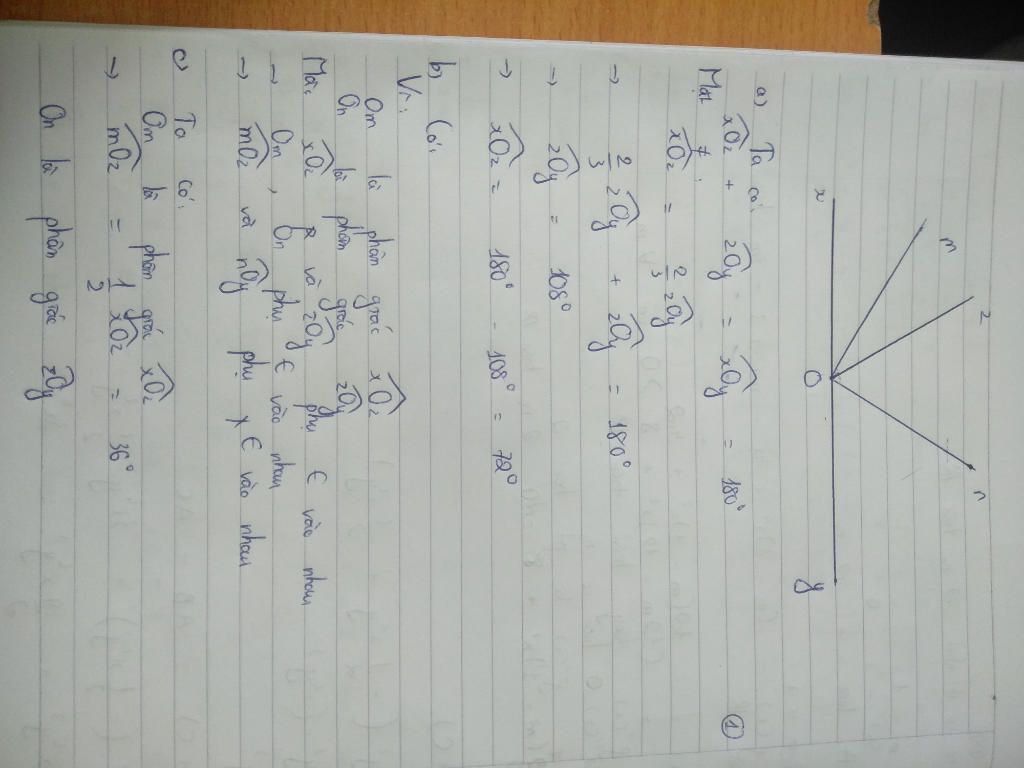 m
z
n
x
O
y
a) Ta có:
xOz + zOy = xOy = 180°
Mặt ≠:
xOz = 2/3 zOy
→ 2/3 zOy + zOy = 180°
→ zOy = 108°
→ xOz = 180° - 108° = 72°
b) Có:
Vì:
Om là phân giác xOz
On là phân giác zOy
Mà: xOz và zOy phụ ∈ vào nhau
→ Om, On phụ ∈ vào nhau
→ mOz và nOy phụ ∈ vào nhau
c) Ta có:
Om là phân giác xOz
→ mOz = 1/2 xOz = 36°
On là phân giác zOy
①